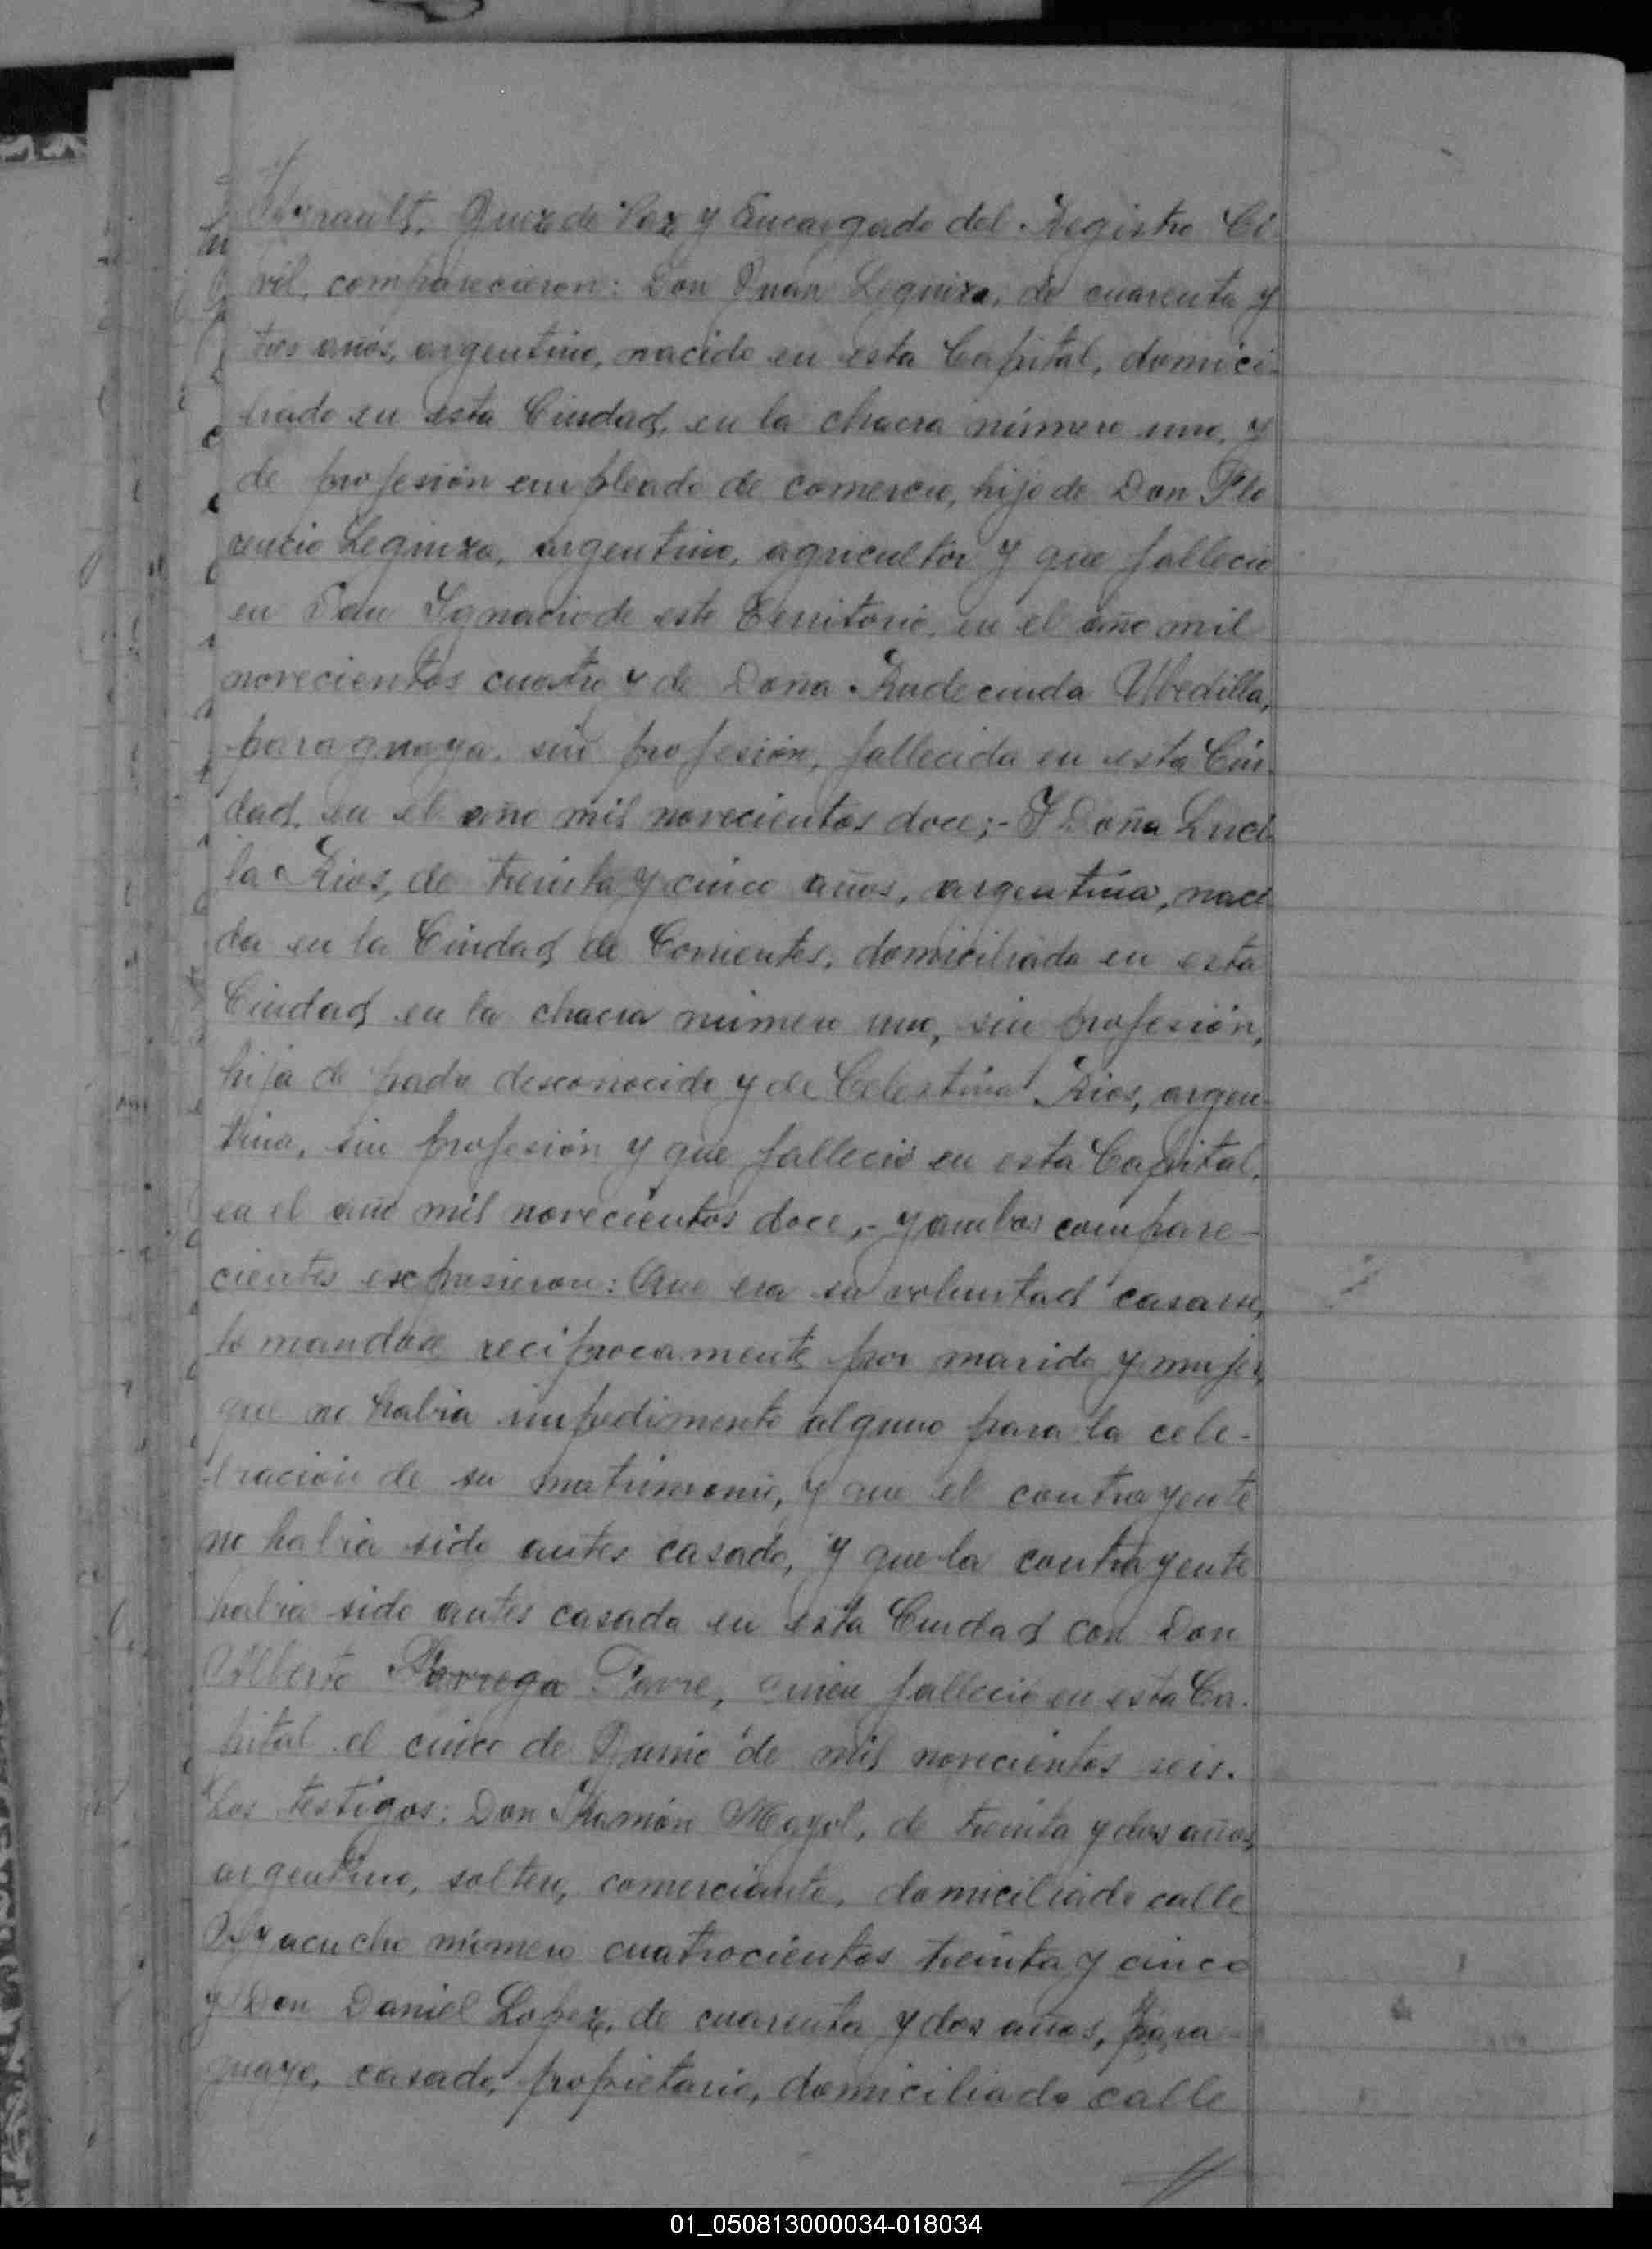 Juez de Paz y Encargado del Registro Ci
vil, comparecieron: Don Juan Leguiza, de cuarenta y
tres años, argentino, nacido en esta Capital, domici-
liado en esta Ciudad, en la chacra número uno, y
de profesión empleado de comercio, hijo de Don Flo
rencio Leguiza, argentino, agricultor y que falleció
en San Ygnacio de este Territorio, en el año mil
novecientos cuatro y de Doña Rudecinda Ubedilla,
paraguaya, sin profesión, fallecida en esta Ciu-
dad, en el año mil novecientos doce;- Y Doña Luci
la Rios, de treinta y cinco años, argentina, naci
da en la Ciudad de Corrientes, domiciliada en esta
Ciudad en la chacra número uno, sin profesión,
hija de padre desconocido y de Celestina Rios, argen-
tina, sin profesión y que falleció en esta Capital,
en el año mil novecientos doce,- y ambos compare-
cientes expusieron: Que era su voluntad casarse,
tomandose reciprocamente por marido y mujer,
que no habia impedimento alguno para la cele-
bración de su matrimonio, y que el contrayente
no habia sido antes casado, y que la contrayente
habia sido antes casada en esta Ciudad con Don
Alberto quien falleció en esta Ca-
pital el cinco de Junio de mil novecientos seis.
Los testigos: Don Ramón Mayol, de treinta y dos años,
argentino, soltero, comerciante, domiciliado calle
Ayacucho número cuatrocientos treinta y cinco
y Don Daniel Lopez, de cuarenta y dos años, para-
guayo, casado, propietario, domiciliado calle
01_050813000034-018034